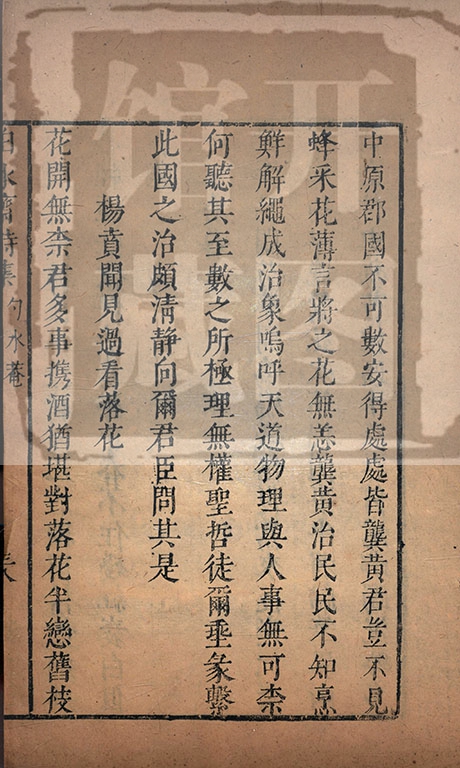 中原郡國不可數安得處處皆龔黄君豈不見
蜂采花薄言將之花無恙龔黄治民民不知烹
鮮解繩成治象嗚呼天道物理與人事無可柰
何聽其至數之所極理無權聖哲徒爾埀彖繫
此國之治頗淸静向爾君臣問其是
楊賁聞見過看落花
花開無柰君多事携酒猶堪對落花半戀舊枝
白水齋詩集 勺水菴